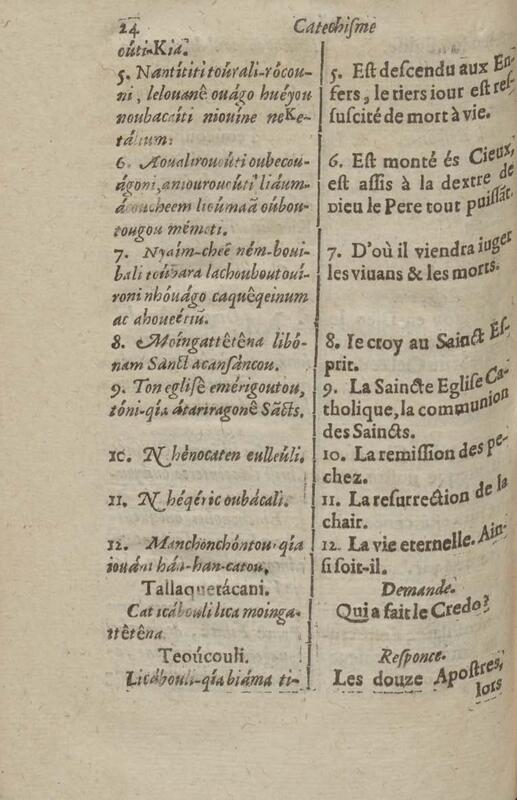 24 Catechiſme
oúti-Kia.
5. Nantítiti toúrali-rócou-
ni, lelouanê ouágo huéyou
noubacaíti niouíne neKe-
tálium:
6. Aoualiroucúti oubecou-
ágoni, aniouroucúti liáum-
ácoucheem lioúmaã oúbou-
tougou mémeti.
7. Nyaim-cheé ném-boui-
bali toúbara lachouboutouí-
roni nhoúágo caquêqeinum
ac ahoueétiũ.
8. Moíngattêtêna libó-
nam Sanct acansáncou.
9. Ton egliſe emérigoutou,
tóni-qia átariragonê Sãcts.
10. Nhénocaten eulleúli.
11. Nhéqéric oubácali.
12. Manchonchóntou-qia
iouáni hán-han-catou.
Tallaquetácani.
Cat icábouli lica moinga-
ttêtêna.
Teoúcouli.
Licábouli-qia biáma ti-
5. Eſt deſcendu aux En-
fers, le tiers iour eſt reſ-
ſuſcité de mort à vie.
6. Eſt monté és Cieux,
eſt aſſis à la dextre de
Dieu le Pere tout puiſſãt.
7. D'où il viendra iuger
les viuans & les morts.
8. Ie croy au Sainct Eſ-
prit.
9. La Saincte Egliſe Ca-
tholique, la communion
des Saincts.
10. La remiſſion des pe-
chez.
11. La reſurrection de la
chair.
12. La vie eternelle. Ain-
ſi ſoit-il.
Demande.
Qui a fait le Credo?
Reſponce.
Les douze Apoſtres,
lors